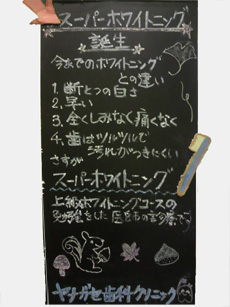 スーパーホワイトニング
誕生
今までのホワイトニング
との違い
1. 断とつの白さ
2. 早い
3. 全くしみなく痛くなく
4. 歯はツルツルで
汚れがつきにくい
さすが
スーパーホワイトニング
上級ホワイトニングコースの
をした
ヤナガセ歯科クリニック